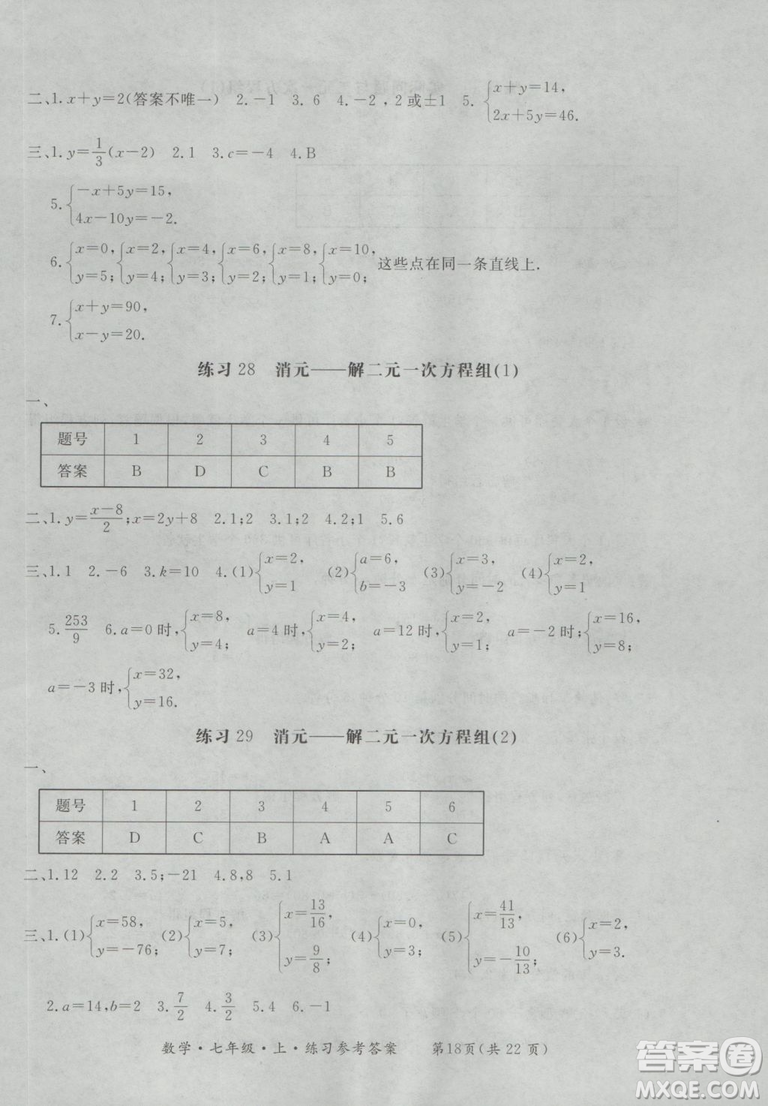 二、1. x+y=2(答案不唯一) 2. -1 3. 6 4. -2,2或±1 5. {x+y=14, 2x+5y=46.
三、1. y=1/3(x-2) 2. 1 3. c=-4 4. B
5. {-x+5y=15, 4x-10y=-2.
6. {x=0, y=5; {x=2, y=4; {x=4, y=3; {x=6, y=2; {x=8, y=1; {x=10, y=0, 这些点在同一条直线上.
7. {x+y=90, x-y=20.
练习 28 消元——解二元一次方程组(1)
一、
题号 1 2 3 4 5
答案 B D C B B
二、1. y=(x-8)/2;x=2y+8 2. 1;2 3. 1;2 4. 2;1 5. 6
三、1. 1 2. -6 3. k=10 4. (1){x=2, y=1 (2){a=6, b=-3 (3){x=3, y=-2 (4){x=2, y=1
5. 253/9 6. a=0时,{x=8, y=4; a=4时,{x=4, y=2; a=12时,{x=2, y=1; a=-2时,{x=16, y=8;
a=-3时,{x=32, y=16.
练习 29 消元——解二元一次方程组(2)
一、
题号 1 2 3 4 5 6
答案 D C B A A C
二、1. 12 2. 2 3. 5;-21 4. 8,8 5. 1
三、1. (1){x=58, y=-76; (2){x=5, y=5; (3){x=13/16, y=9/8; (4){x=0, y=3; (5){x=41/13, y=-10/13; (6){x=2, y=3;
2. a=14,b=2 3. 7/2 4. 3/2 5. 4 6. -1
数学·七年级·上·练习参考答案 第18页(共 22 页)
答案圈
MXQE.COM